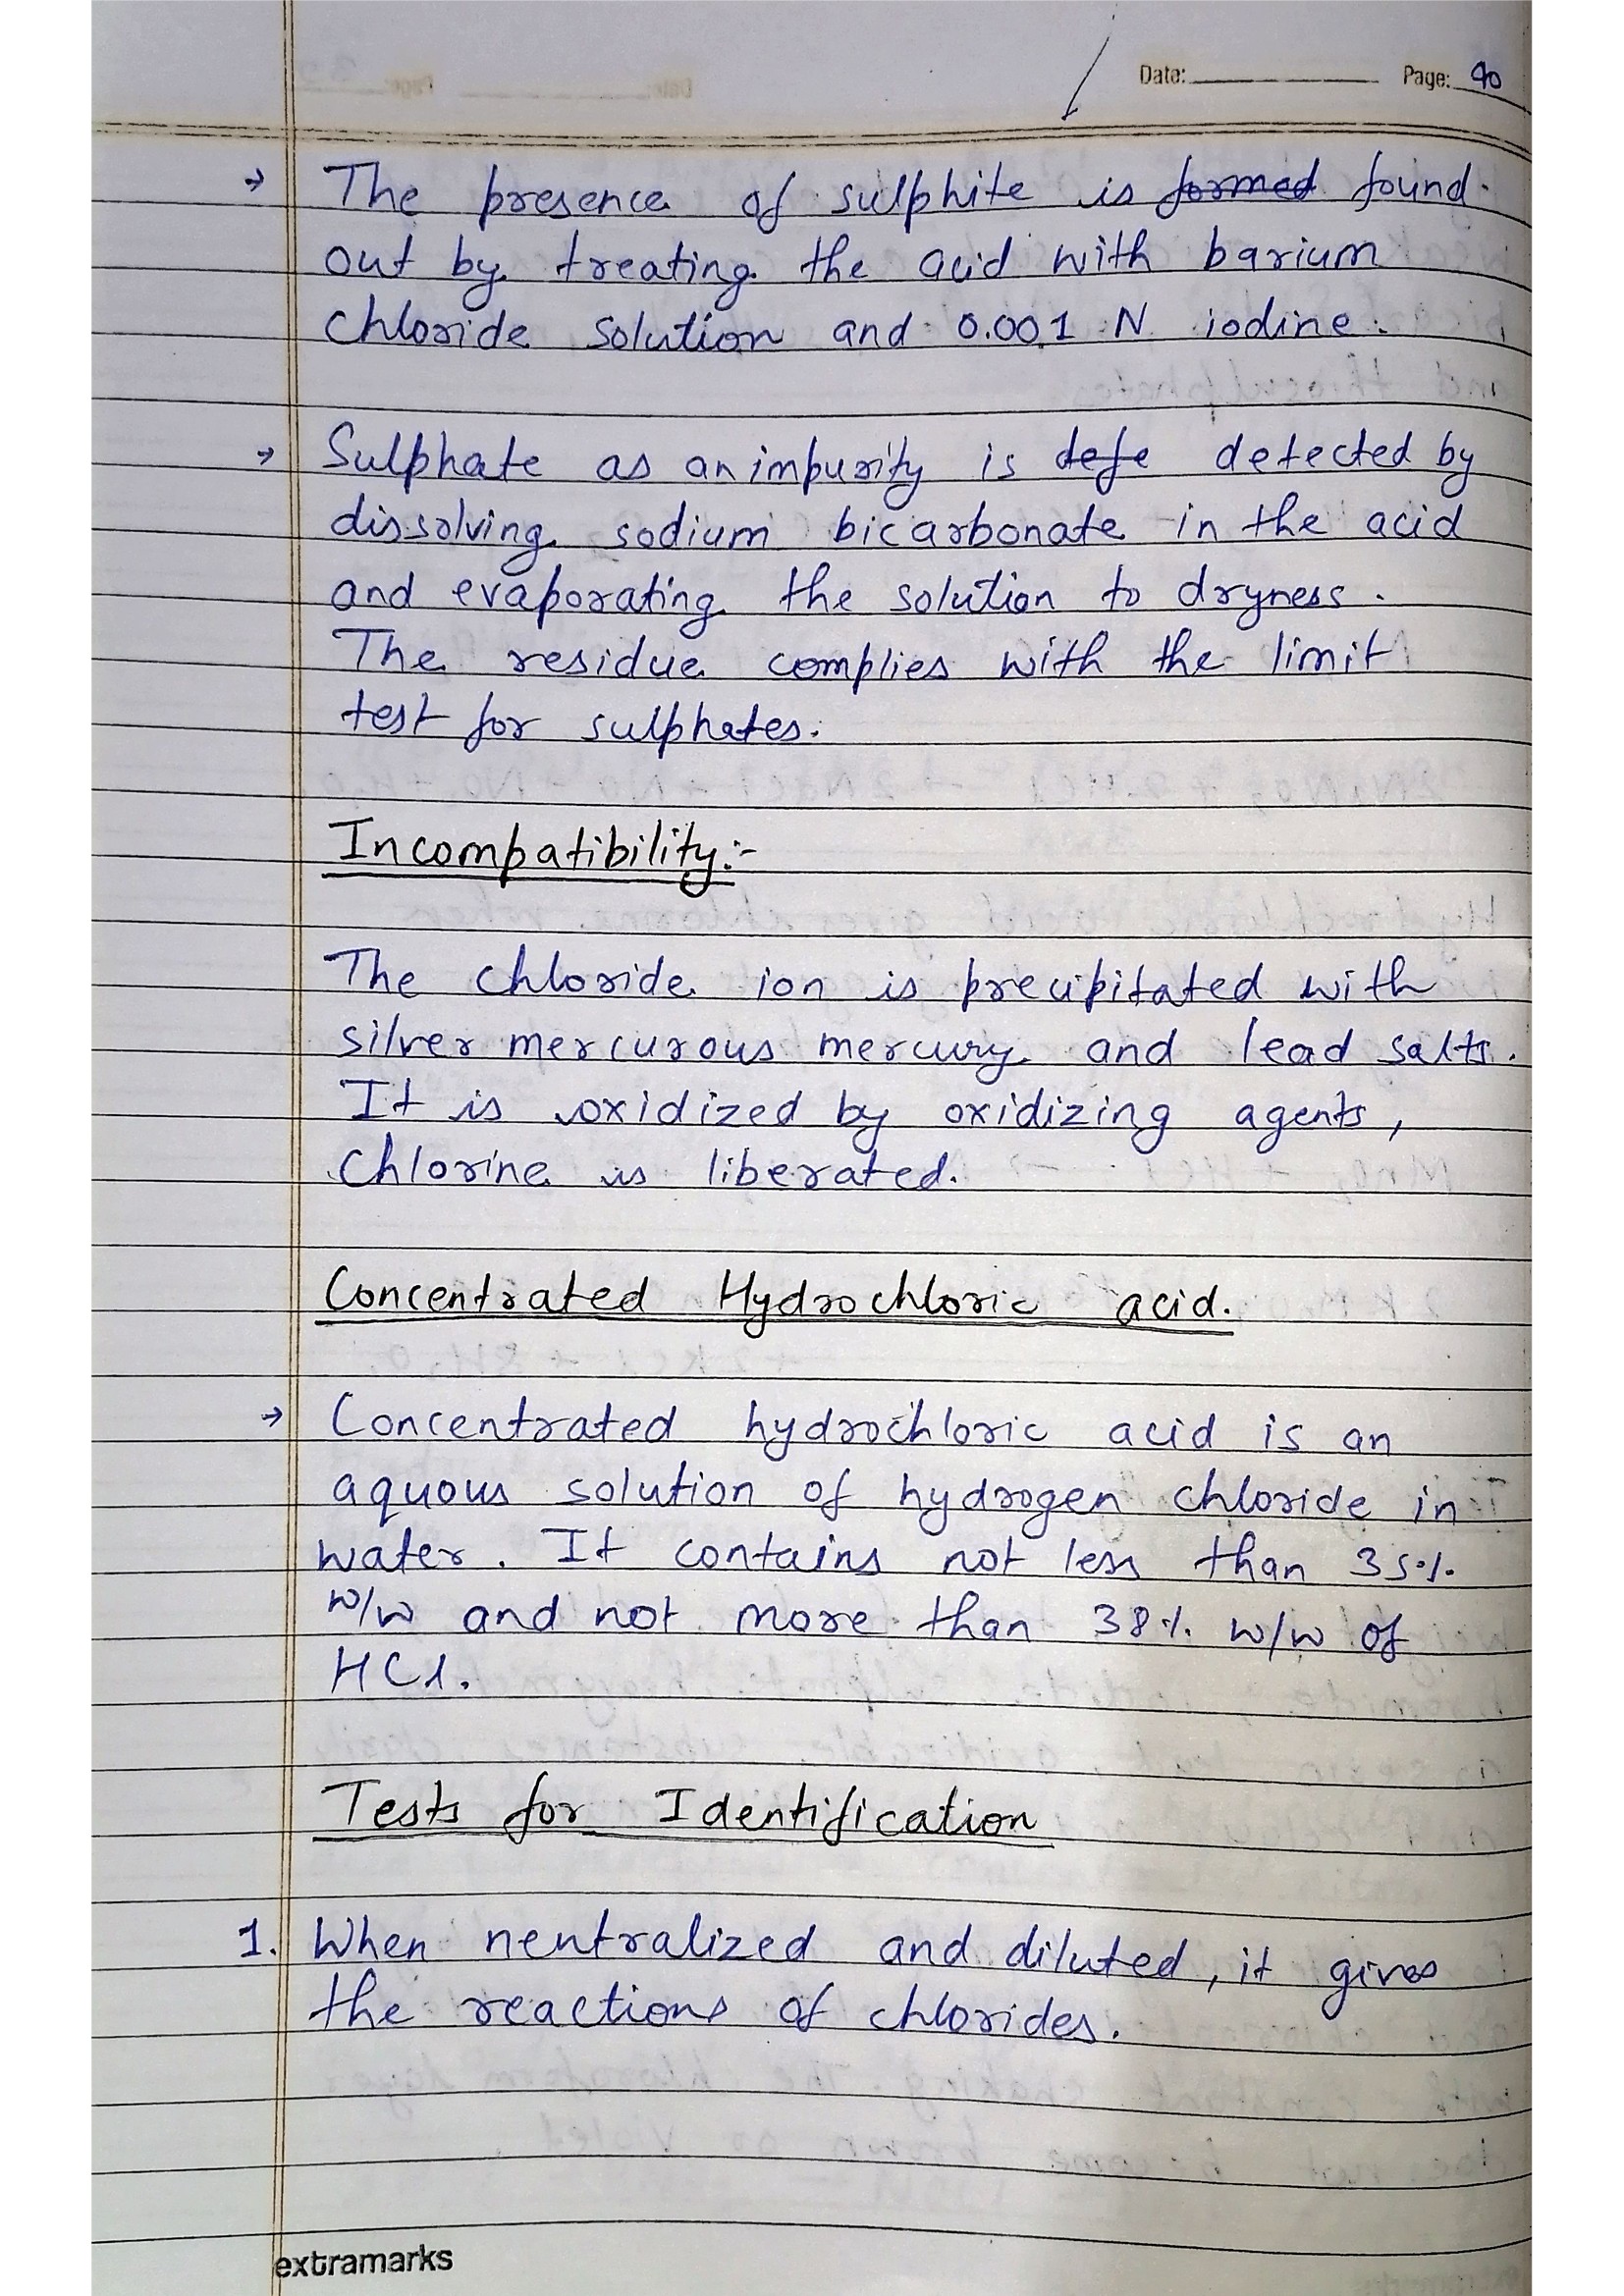 Date: Page: 40
→ The presence of sulphite is formed found
out by treating the acid with barium
chloride solution and 0.001 N iodine.
→ Sulphate as an impurity is defe detected by
dissolving sodium bicarbonate in the acid
and evaporating the solution to dryness.
The residue complies with the limit
test for sulphates.
Incompatibility:-
The chloride ion is precipitated with
silver mercurous mercury and lead salts.
It is oxidized by oxidizing agents,
Chlorine is liberated.
Concentrated Hydrochloric acid.
→ Concentrated hydrochloric acid is an
aquous solution of hydrogen chloride in
water. It contains not less than 35%
w/w and not more than 38% w/w of
HCl.
Tests for Identification
1. When neutralized and diluted, it gives
the reactions of chlorides.
extramarks